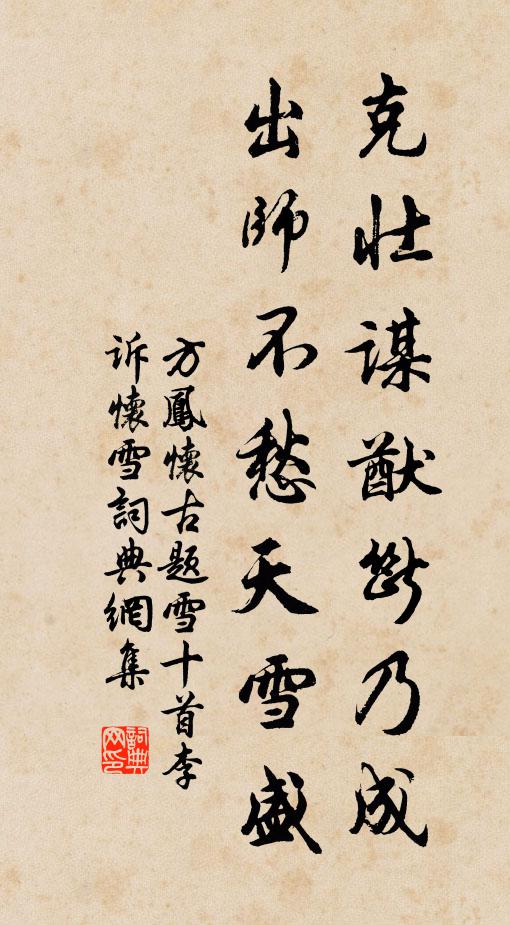 克壮謀猷断乃成
出師不愁天雪盛
方鳳懷古題雪十首李
诉懷雪詞典網集
詞典网印